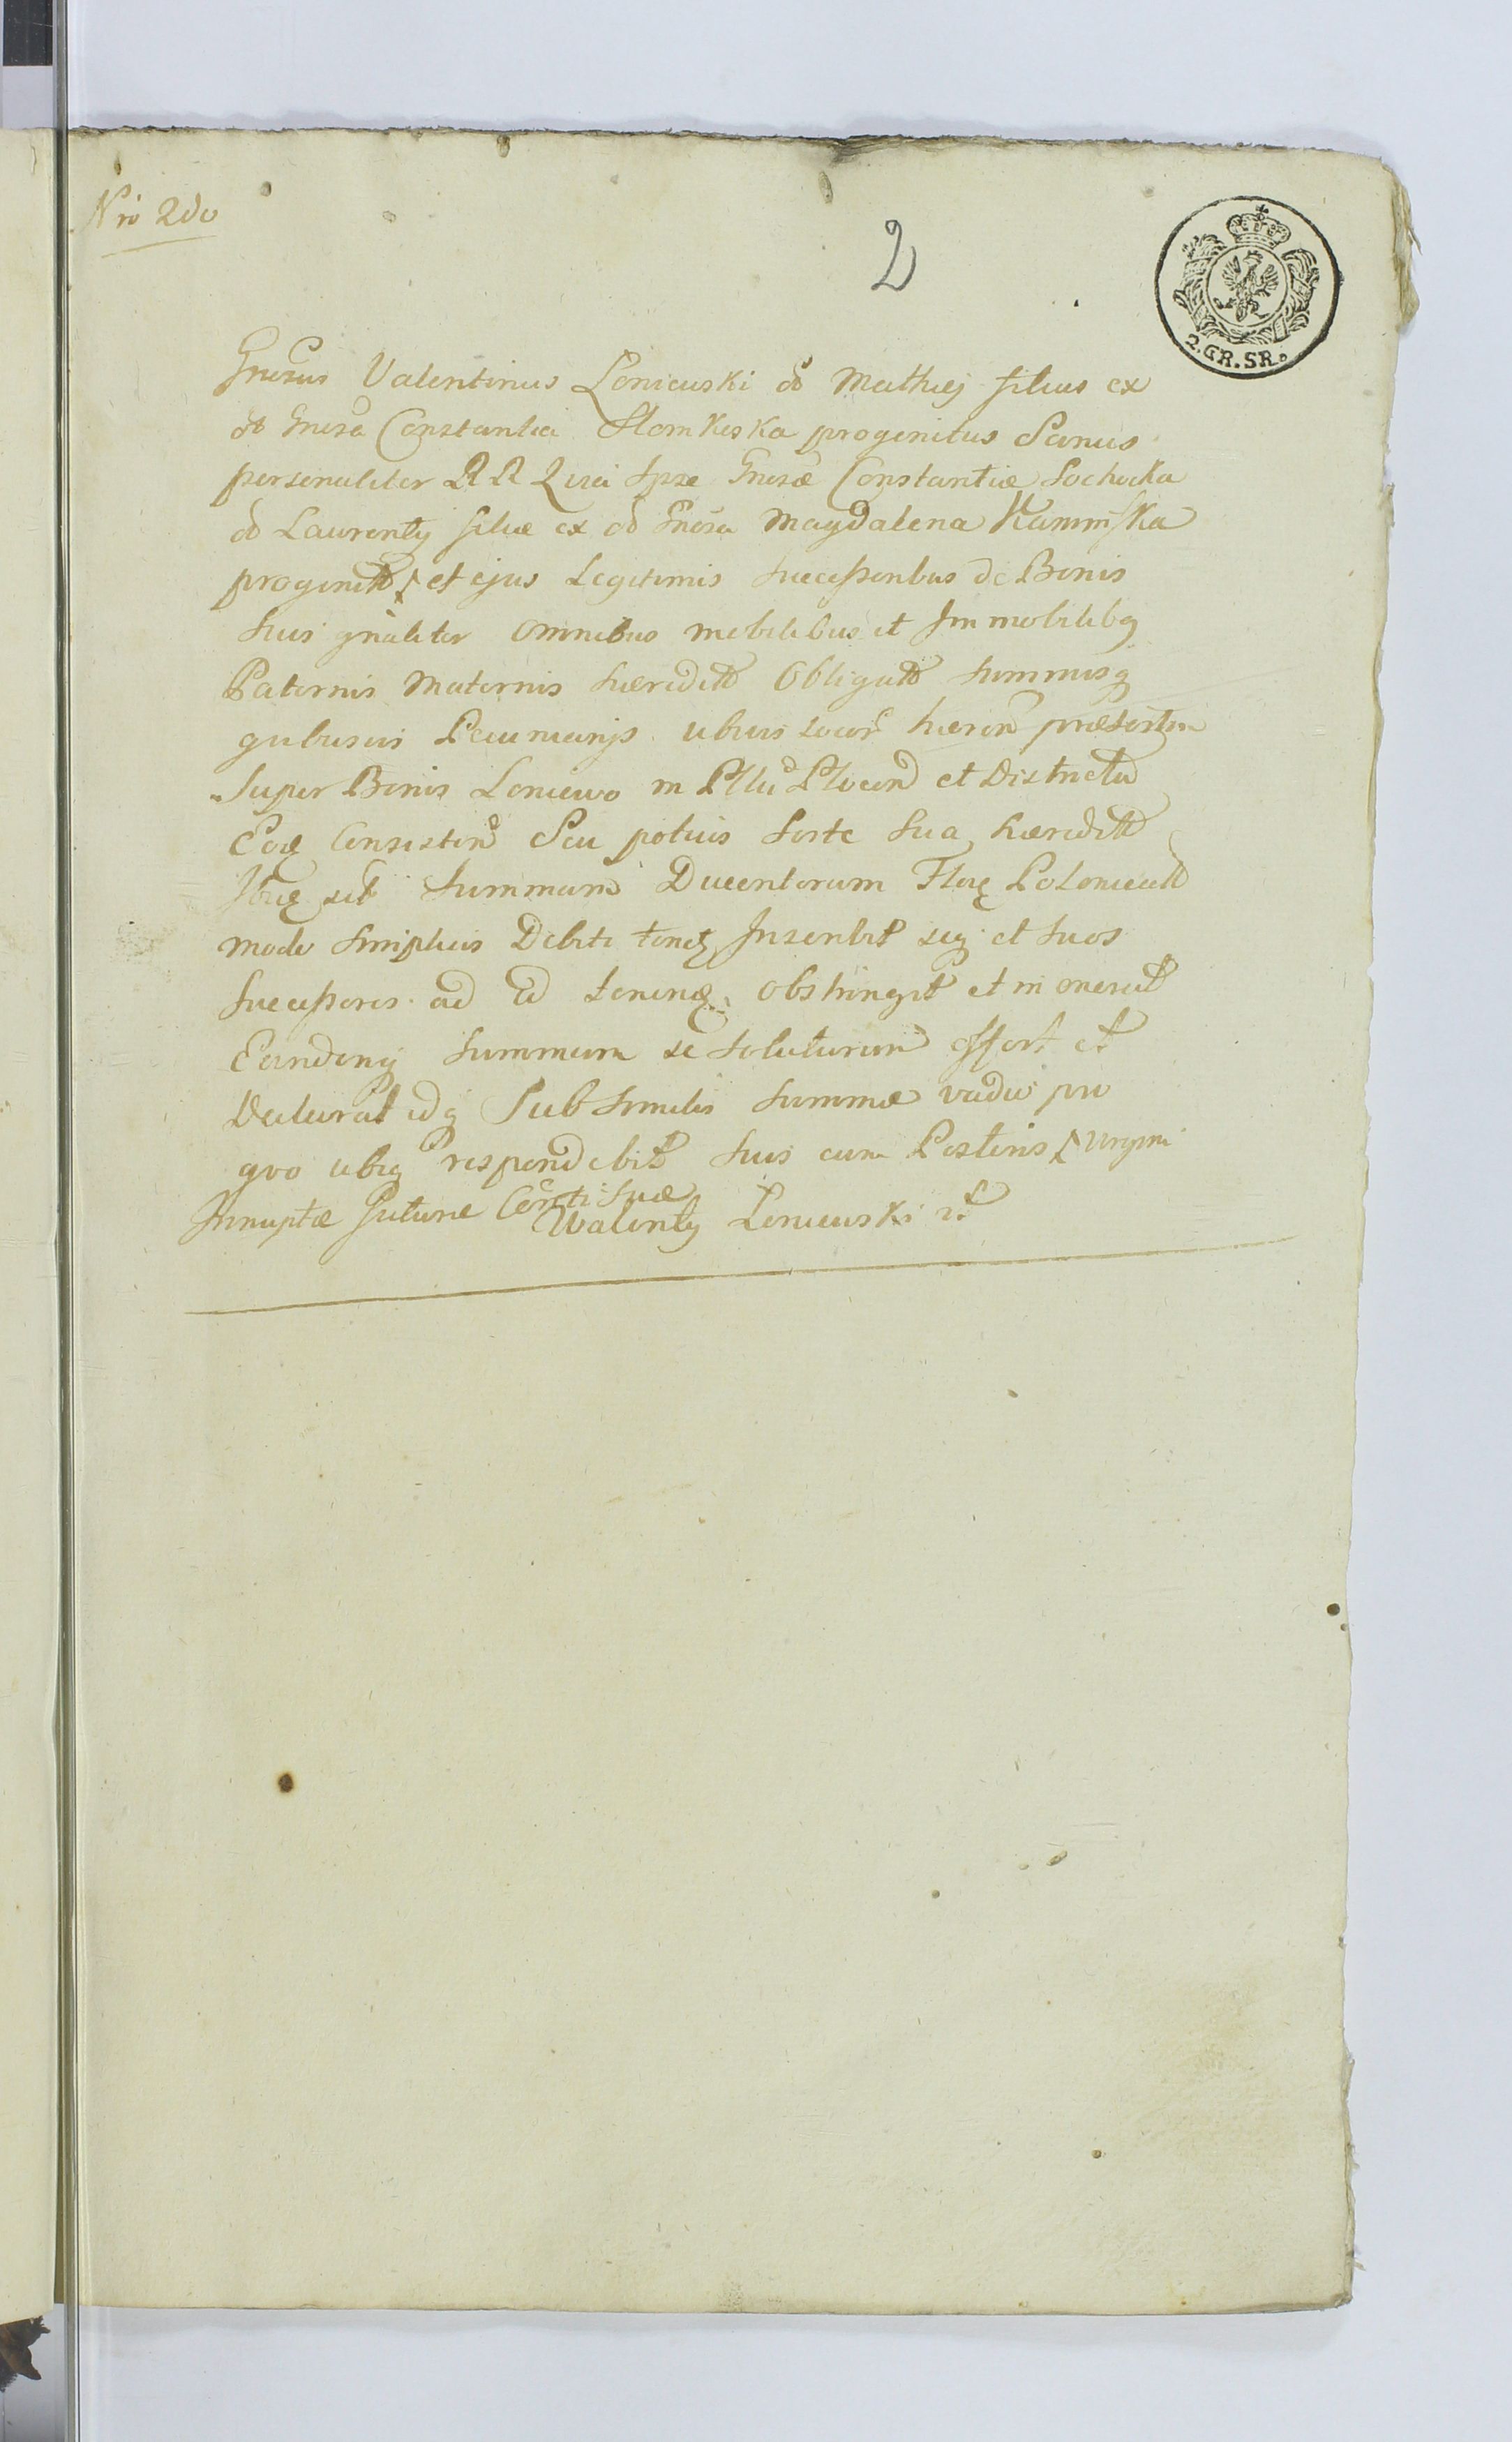 Nro 2do
2
2. GR. SR.
Gnosus Valentinus Leniewski od Mathiej filius ex
od Gnosa Constantia Slomkoska progenitus Sanus
personaliter RR Quia Ipse Gnosae Constantiae Sochocka
od Laurentÿ filiae ex od Gnosa Magdalena Kaminska
progenitt et ejus Legitimis Successoribus de Bonis
suis gnaliter omnibus mobilibus et Immobilibq
Paternis Maternis haereditt Obligatt summisq
quibusvis Pecuniarijs ubivis locor haeren praesertim
super Bonis Leniewo in Pttu Plocen et Districtu
Eoq Consisten Seu potius sorte sua haereditt
sit Summam Ducentorum Flor Polonicatt
modo simplicis Debiti tenetq Inscribit seq et suos
Successores ad id tenenq obstringit et in onerat
Eandemq summam se soluturum offert et
Declarat idq Sub similis summae vadio pro
quo ubiq respondebit suis cum Posteris Virgini
Innuptae Futurae Conti suae
Walenty Leniewski